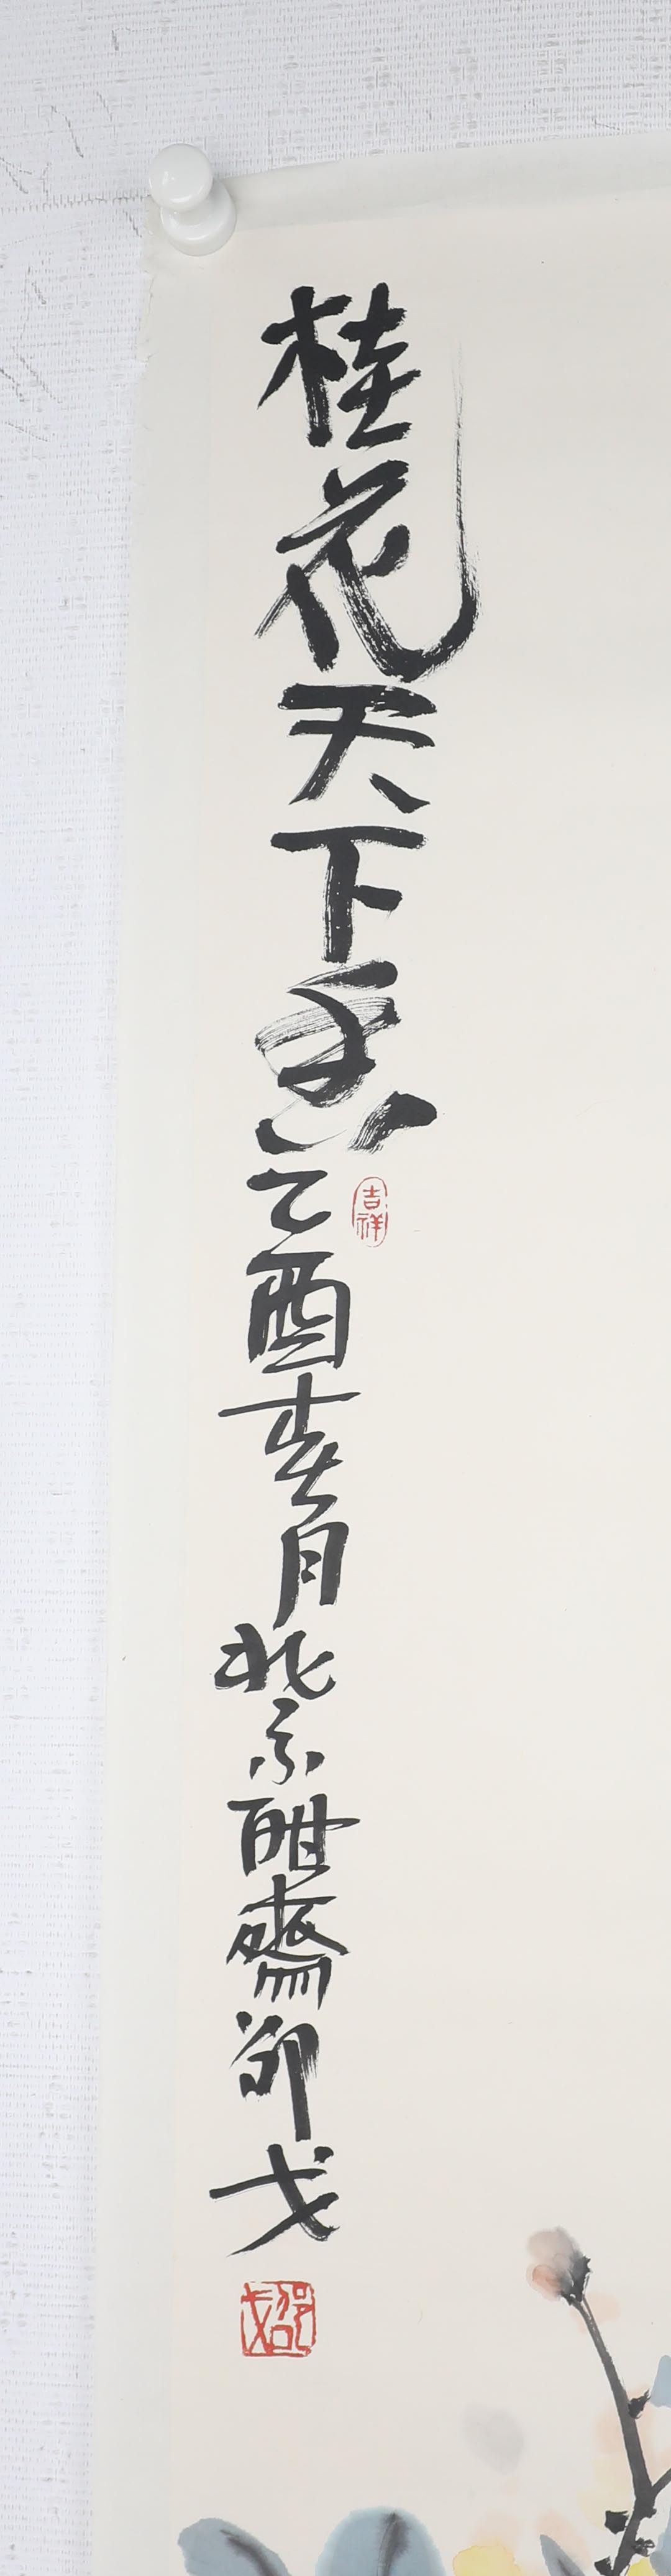 桂花天下香
吉祥
乙酉春月北京酣斋邵戈
邵戈